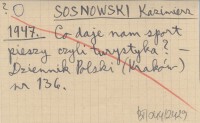 ? O SOSNOWSKI Kazimierz
1947. Co daje nam sport
pieszy czyli turystyka? –
Dziennik Polski (Kraków)
nr 136.